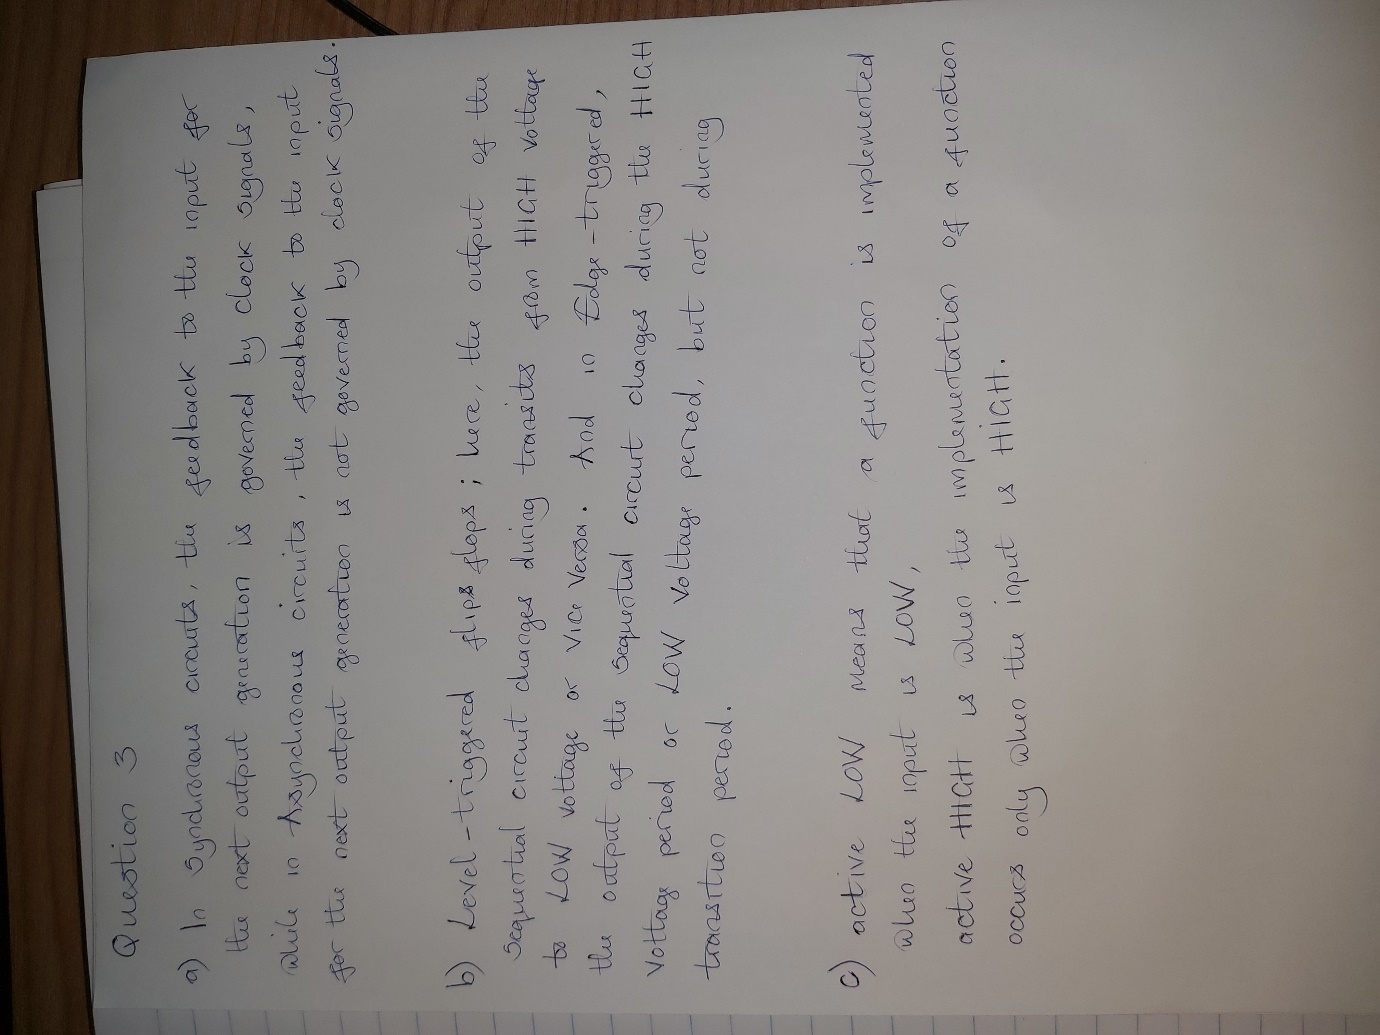 Question 3
a) In synchronous circuits, the feedback to the input for
the next output generation is governed by clock signals,
while in Asynchronous circuits, the feedback to the input
for the next output generation is not governed by clock signals.
b) Level-triggered flips flops; here, the output of the
sequential circuit changes during transits from HIGH voltage
to LOW voltage or vice versa. And in Edge-triggered,
the output of the sequential circuit changes during the HIGH
voltage period or LOW voltage period, but not during
transition period.
c) active LOW means that a function is implemented
when the input is LOW,
active HIGH is when the implementation of a function
occurs only when the input is HIGH.